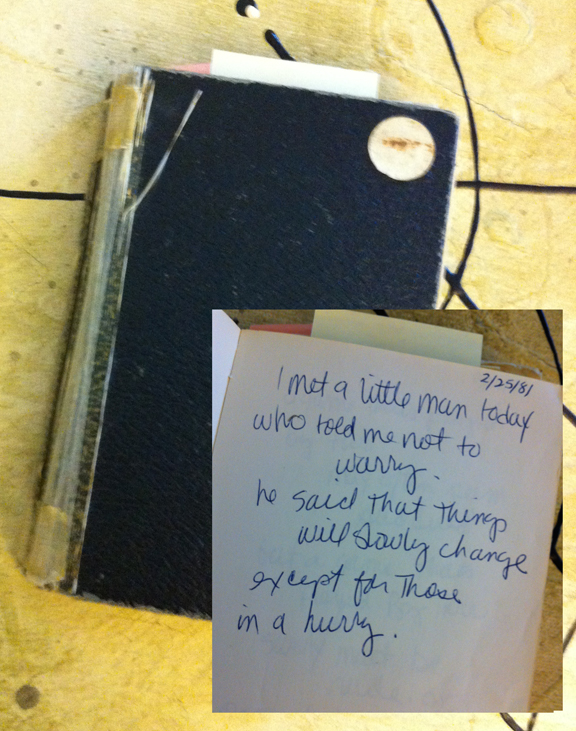 2/25/81
I met a little man today
who told me not to
warry.
he said that things
will slowly change
except for those
in a hurry.